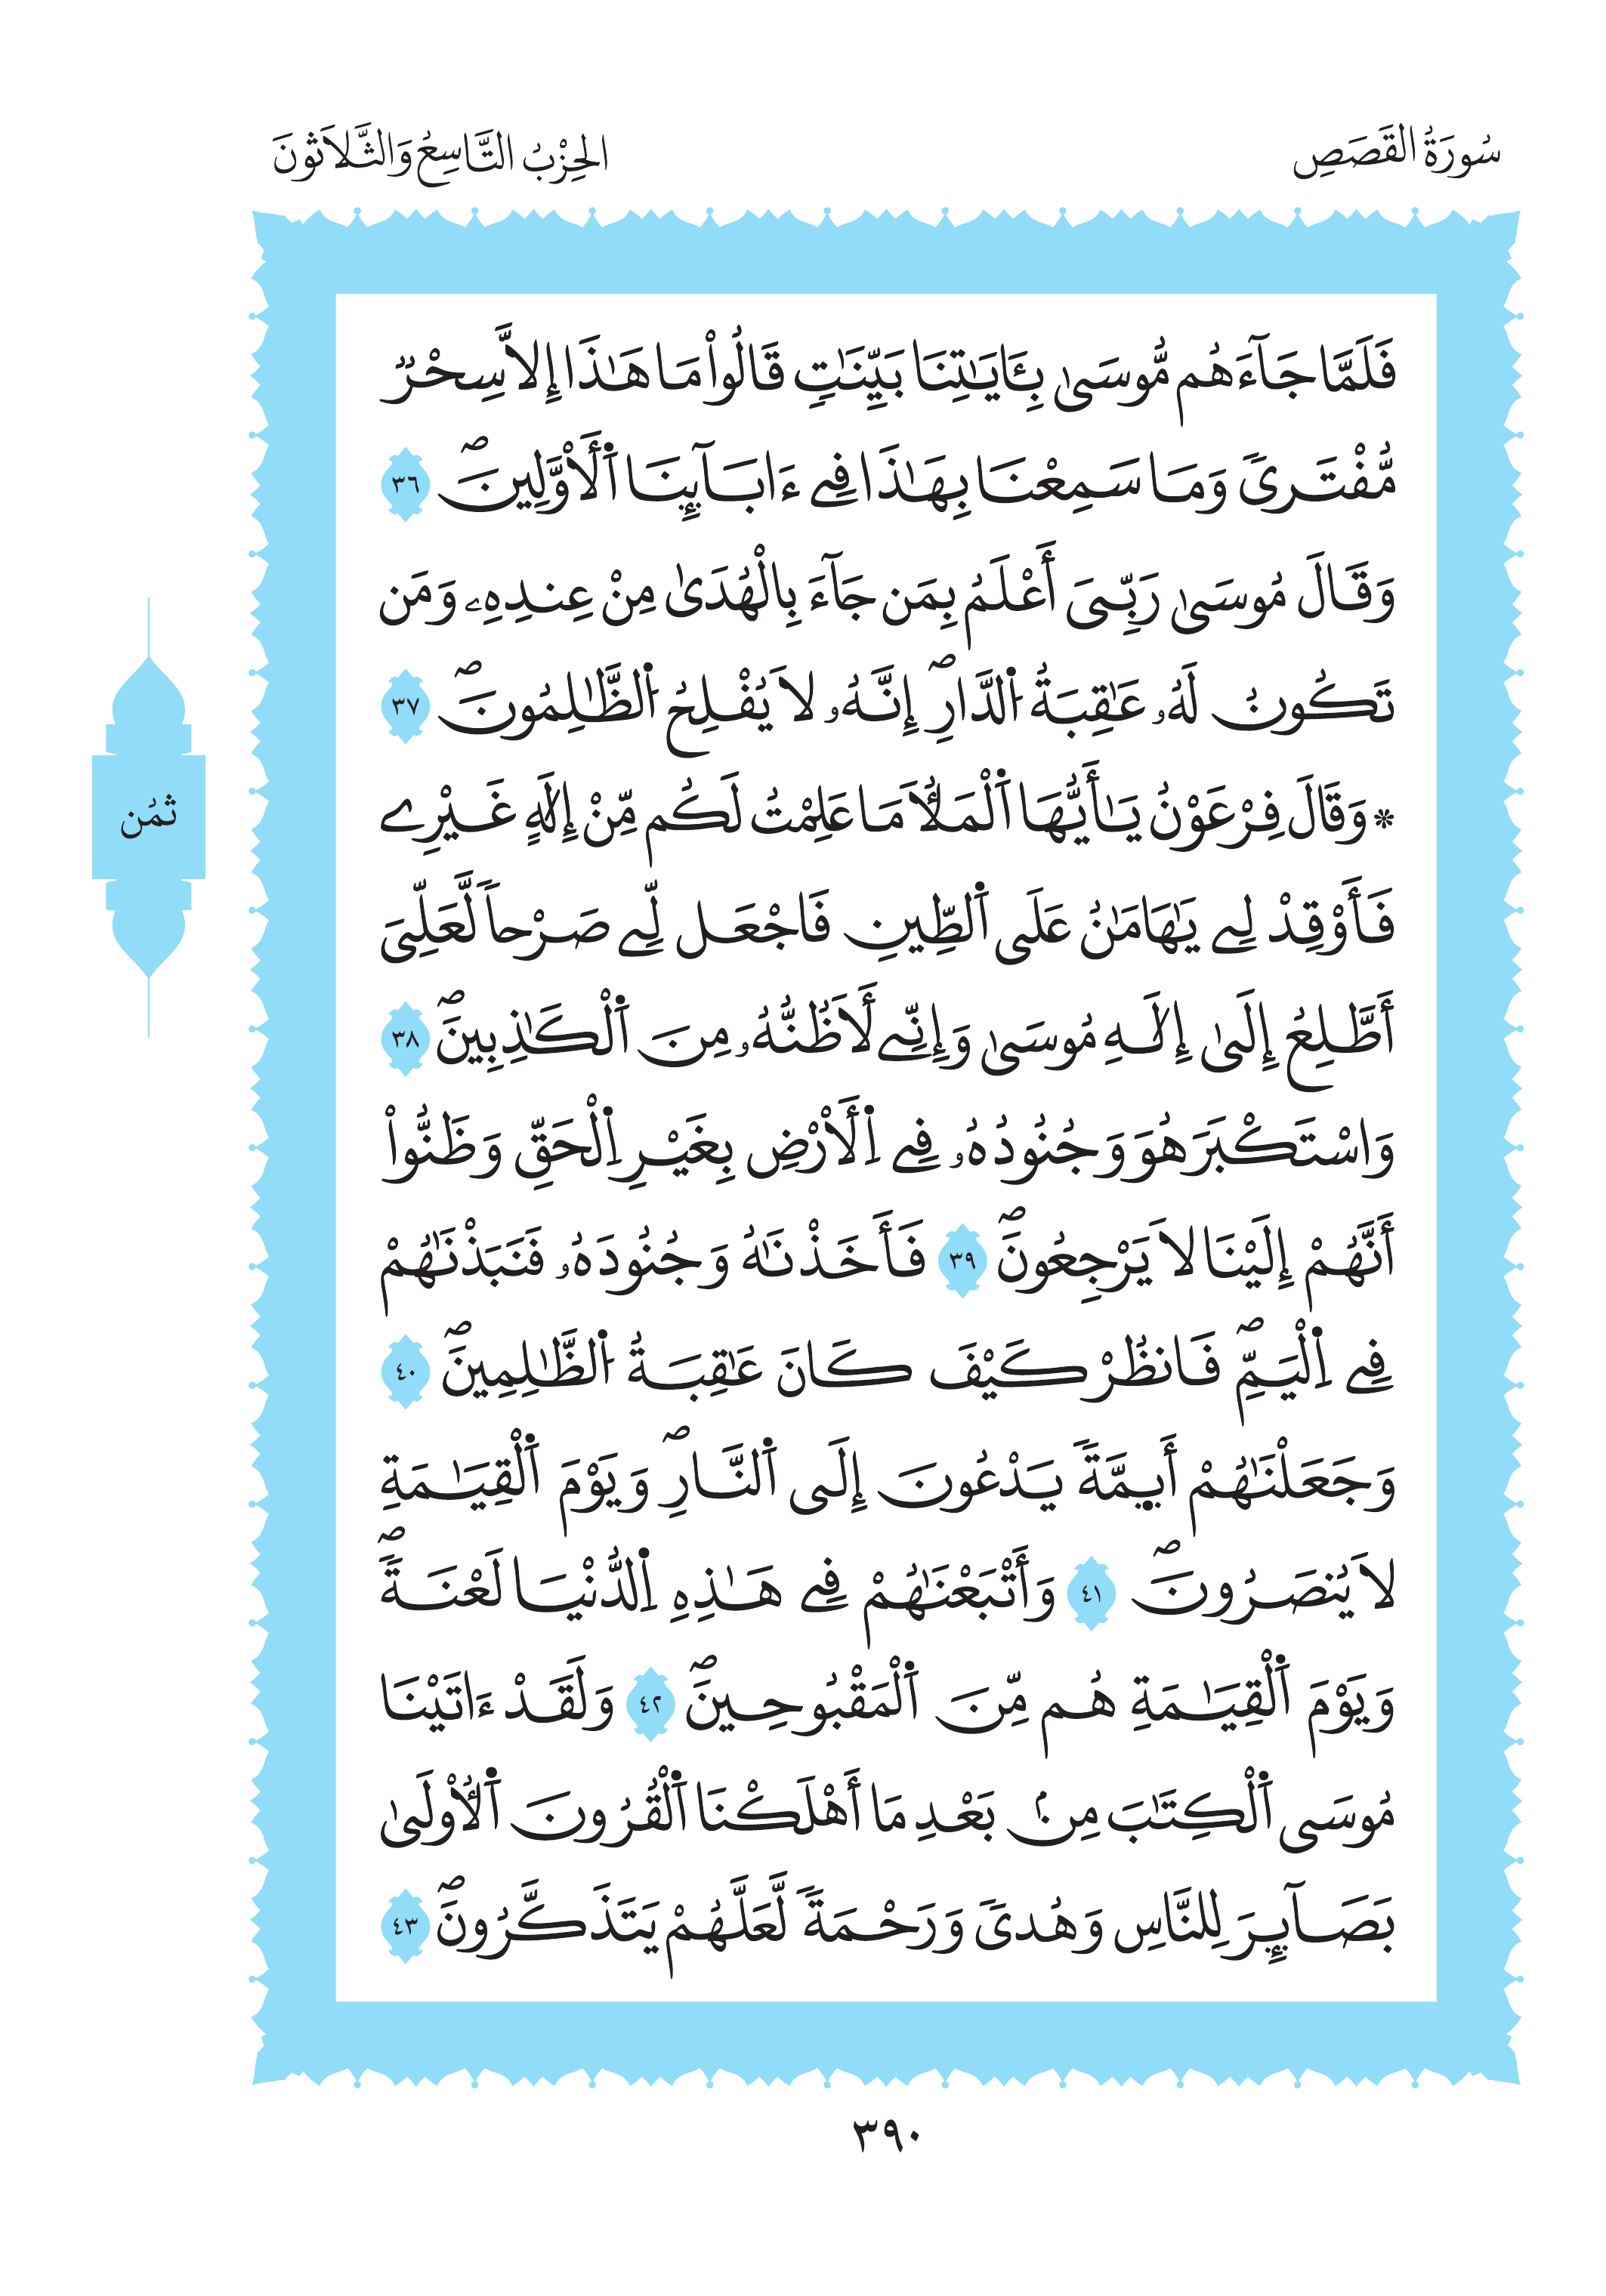 سُورَةُ القَصَصِ
الحِزْبُ التَّاسِعُ وَالثَّلَاثونَ
فَلَمَّا جَآءَهُم مُّوسَىٰ بِـَٔايَٰتِنَا بَيِّنَٰتٖ قَالُواْ مَا هَٰذَا إِلاَّ سِحْرٞ
مُّفْتَرىٗ وَمَا سَمِعْنَا بِهَٰذَا فِےٓ ءَابَآئِنَا اَ۬لْأَوَّلِينَۖ ٣٦
وَقَالَ مُوسَىٰ رَبِّيَ أَعْلَمُ بِمَن جَآءَ بِالْهُدَىٰ مِنْ عِندِهِۦ وَمَن
تَكُونُ لَهُۥ عَٰقِبَةُ اُ۬لدَّارِۖ إِنَّهُۥ لَا يُفْلِحُ اُ۬لظَّٰلِمُونَۖ ٣٧
* وَقَالَ فِرْعَوْنُ يَٰٓأَيُّهَا اَ۬لْمَلَأُ مَا عَلِمْتُ لَكُم مِّنْ إِلَٰهٍ غَيْرِے
فَأَوْقِدْ لِے يَٰهَٰمَٰنُ عَلَى اَ۬لطِّينِ فَاجْعَل لِّے صَرْحاٗ لَّعَلِّيَ
أَطَّلِعُ إِلَىٰٓ إِلَٰهِ مُوسَىٰ وَإِنِّے لَأَظُنُّهُۥ مِنَ اَ۬لْكَٰذِبِينَۖ ٣٨
وَاسْتَكْبَرَ هُوَ وَجُنُودُهُۥ فِے اِ۬لْأَرْضِ بِغَيْرِ اِ۬لْحَقِّ وَظَنُّوٓاْ
أَنَّهُمْ إِلَيْنَا لَا يَرْجِعُونَۖ ٣٩ فَأَخَذْنَٰهُ وَجُنُودَهُۥ فَنَبَذْنَٰهُمْ
فِے اِ۬لْيَمِّۖ فَانظُرْ كَيْفَ كَانَ عَٰقِبَةُ اُ۬لظَّٰلِمِينَۖ ٤٠
وَجَعَلْنَٰهُمْ أَئِمَّةٗ يَدْعُونَ إِلَى اَ۬لنَّارِۖ وَيَوْمَ اَ۬لْقِيَٰمَةِ
لَا يُنصَرُونَۖ ٤١ وَأَتْبَعْنَٰهُمْ فِے هَٰذِهِ اِ۬لدُّنْيَا لَعْنَةٗۖ
وَيَوْمَ اَ۬لْقِيَٰمَةِ هُم مِّنَ اَ۬لْمَقْبُوحِينَۖ ٤٢ وَلَقَدْ ءَاتَيْنَا
مُوسَى اَ۬لْكِتَٰبَ مِنۢ بَعْدِ مَا أَهْلَكْنَا اَ۬لْقُرُونَ اَ۬لْأُولَىٰ
بَصَآئِرَ لِلنَّاسِ وَهُدىٗ وَرَحْمَةٗ لَّعَلَّهُمْ يَتَذَكَّرُونَۖ ٤٣
ثمُن
٣٩٠